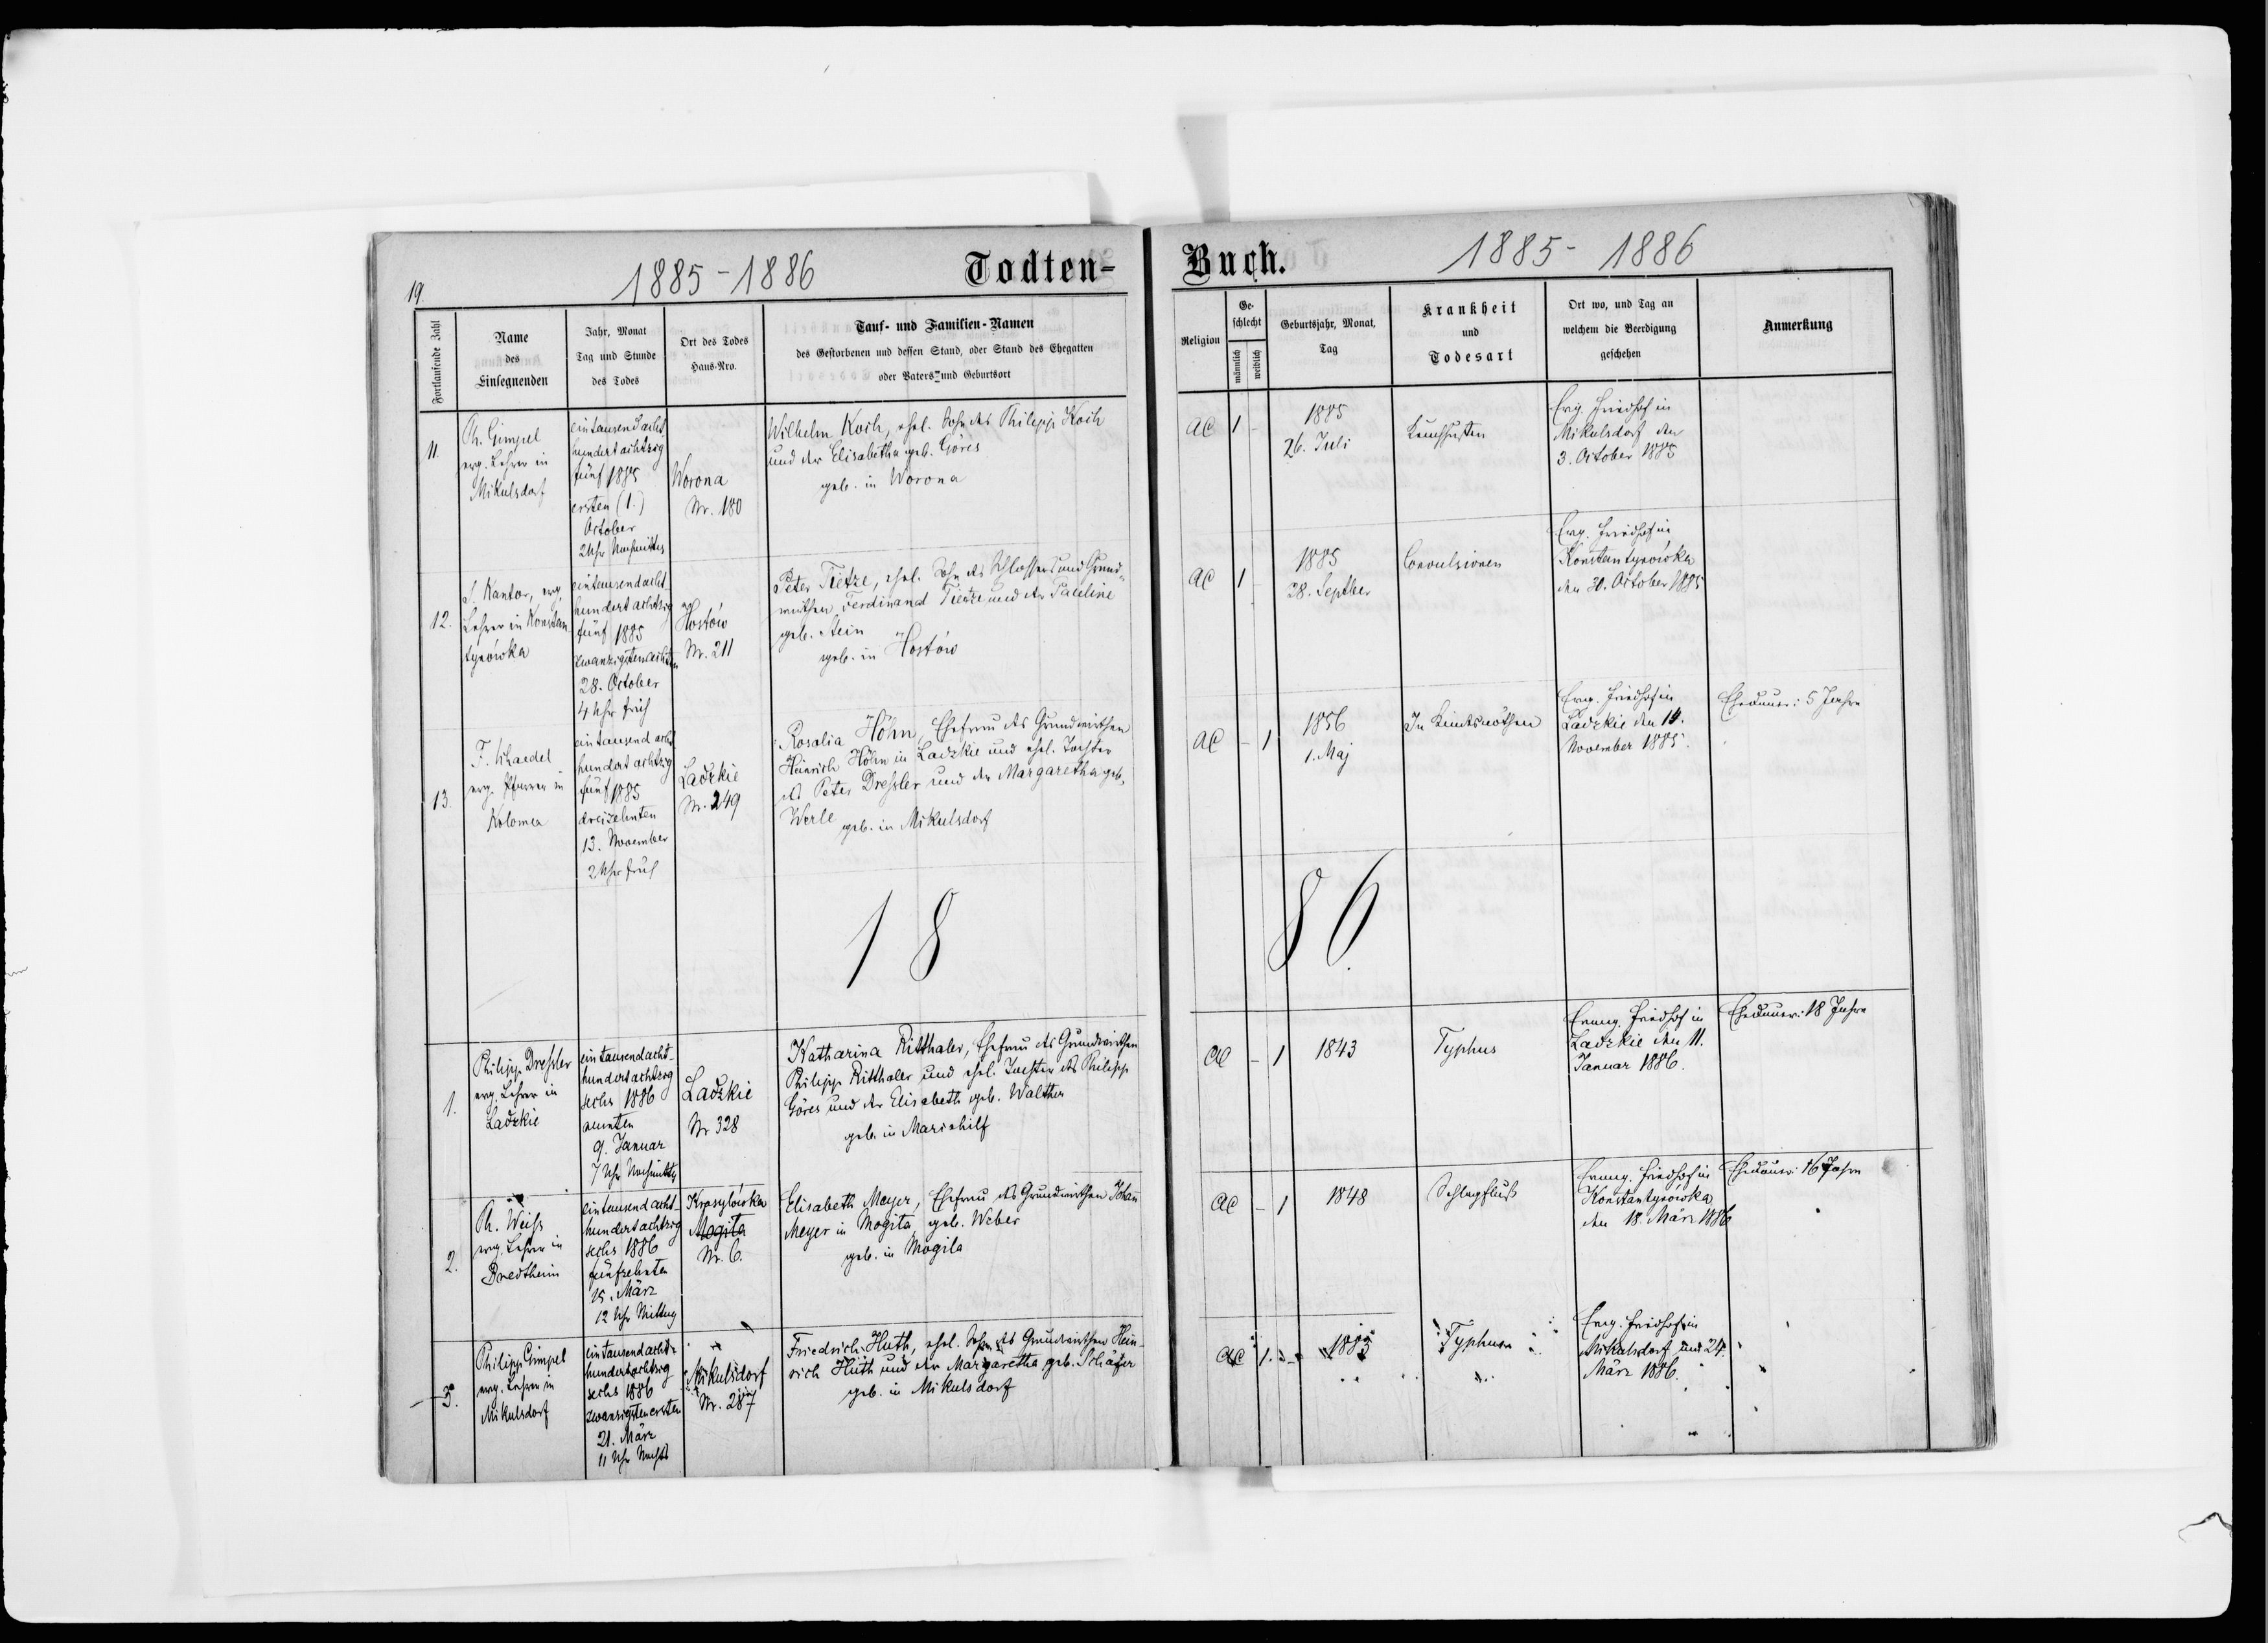 19.
1885-1886
Todten-
Fortlaufende Zahl
Name
des
Einsegnenden
Jahr, Monat
Tag und Stunde
des Todes
Ort des Todes
Haus-Nro.
Tauf- und Familien-Namen
des Gestorbenen und dessen Stand, oder Stand des Ehegatten
oder Vaters und Geburtsort
11.
Ph. Gimpel
evg. Lehrer in
Mikulsdorf
eintausend acht
hundert achtzig
fünf 1885
ersten (1.)
October
2 Uhr Nachmittag
Worona
Nr. 180
Wilhelm Koch, ehel. Sohn des Philipp Koch
und der Elisabetha geb. Göres
geb. in Worona
12.
J. Kantor, evg.
Lehrer in Konstan
tynówka
eintausendacht
hundert achtzig
fünf 1885
zwanzigstenachten
28. October
4 Uhr früh
Hostów
Nr. 211
Peter Tietze, ehel. Sohn des Schlossers und Grund-
wirthen Ferdinand Tietze und der Pauline
geb. Stein
geb. in Hostów
13.
evg. Pfarrer in
Kolomea
eintausend acht
hundert achtzig
fünf 1885
dreizehnten
13. November
2 Uhr früh
Ladzkie
Nr. 249
Rosalia Höhn, Ehefrau des Grundwirthen
Heinrich Höhn in Ladzkie und ehel. Tochter
des Peter Dressler und der Margaretha geb.
Werle geb. in Mikulsdorf
18
1.
Philipp Dressler
evg. Lehrer in
Ladzkie
eintausendacht-
hundertachtzig
sechs 1886
neunten
9. Januar
7 Uhr Nachmittag
Ladzkie
Nr 328
Katharina Ritthaler, Ehefrau des Grundwirthen
Philipp Ritthaler und ehel. Tochter des Philipp
Göres und der Elisabeth geb. Walther
geb. in Mariahilf
2.
Ph. Weiss
evg. Lehrer in
Bredtheim
eintausendacht-
hundert achtzig
sechs 1886
fünfzehnten
15. März
12 Uhr Mittag
Krasylówka
Mogila
Nr. 6.
Elisabeth Meyer, Ehefrau des Grundwirthen Johan
Meyer in Mogila, geb. Weber
geb. in Mogila
3.
Philipp Gimpel
evg. Lehrer in
Mikulsdorf
eintausendacht-
hundertachtzig
sechs 1886
zwanzigstenersten
21. März
11 Uhr Nachts
Mikulsdorf
Nr. 287
Friedrich Huth, ehel. Sohn des Grundwirthen Hein-
rich Huth und der Margaretha geb. Schäfer
geb. in Mikulsdorf
Buch.
1885- 1886
Religion
Ge-
schlecht
männlich
weiblich
Geburtsjahr, Monat,
Tag
Krankheit
und
Todesart
Ort wo, und Tag an
welchem die Beerdigung
geschehen
Anmerkung
AC
1
-
1885
26. Juli
Keuchhusten
Evg. Friedhof in
Mikulsdorf den
3. October 1885
AC
1
-
1885
28. Septber
Convulsionen
Evg. Friedhof in
Konstantynówka
den 30. October 1885
AC
-
1
1856
1. Maj
In Kindsnöthen
Evg. Friedhof in
Ladzkie den 14.
November 1885.
Ehedauer: 5 Jahre
86
AC
-
1
1843
Typhus
Evang. Friedhof in
Ladzkie den 11.
Januar 1886.
Ehedauer: 18 Jahre
AC
-
1
1848
Schlagfluß
Evang. Friedhof in
Konstantynówka
den 18. März 1886
Ehedauer: 16 Jahre
AC
1
-
1885
Typhus
Evg. Friedhof in
Mikulsdorf den 24.
März 1886.